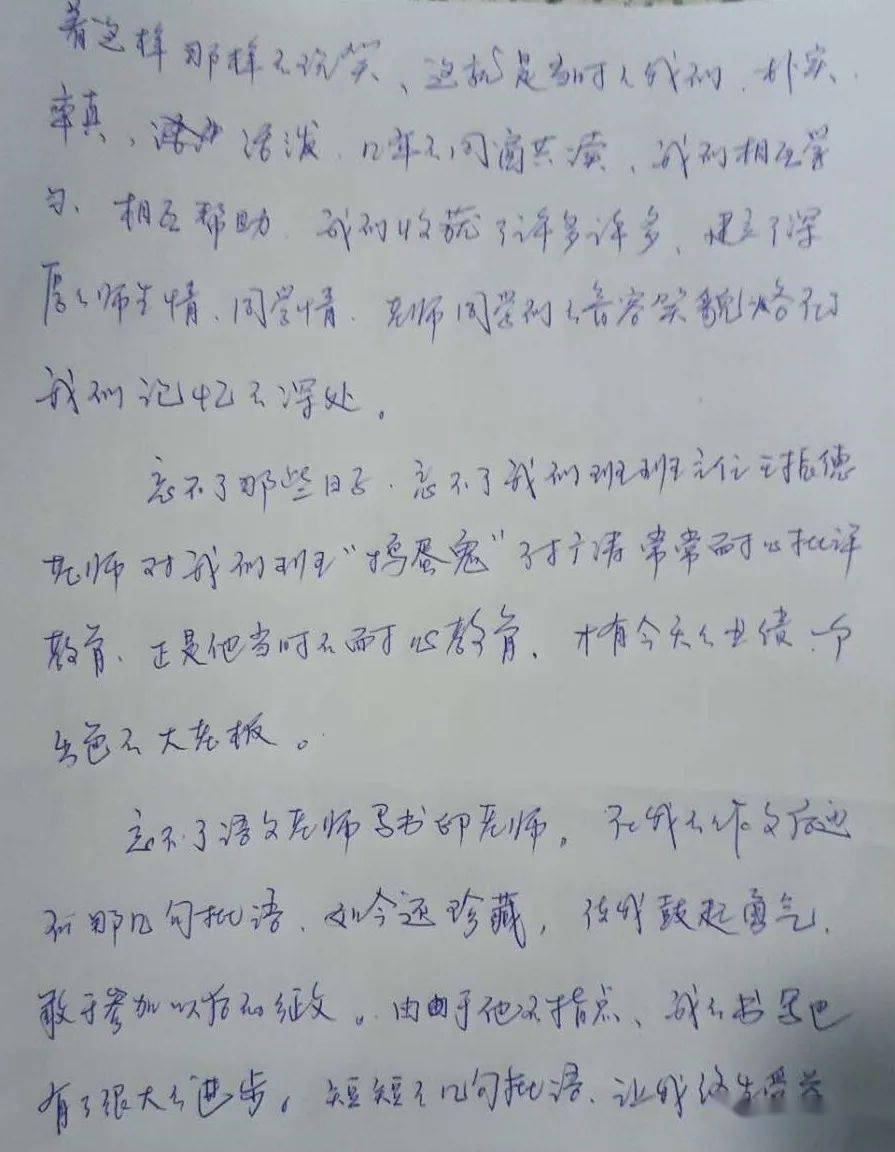 着这样那样的玩笑、这就是当时的我们、朴实、
率真、活泼、几年的同窗共读、我们相互学
习、相互帮助、我们收获了许多许多、建立了深
厚的师生情、同学情、老师同学们的音容笑貌烙在
我们记忆的深处。
忘不了那些日子、忘不了我们班班主任王振德
老师对我们班“捣蛋鬼”常常耐心批评
教育、正是他当时的耐心教育、才有今天的业绩、一个
出色的大老板。
忘不了语文老师马书印老师。在我的作文后边
的那几句批语、如今还珍藏，使我鼓起勇气、
敢于参加以后的征文。由于他的指点、我的书写也
有了很大的进步。短短的几句批语、让我终生受益